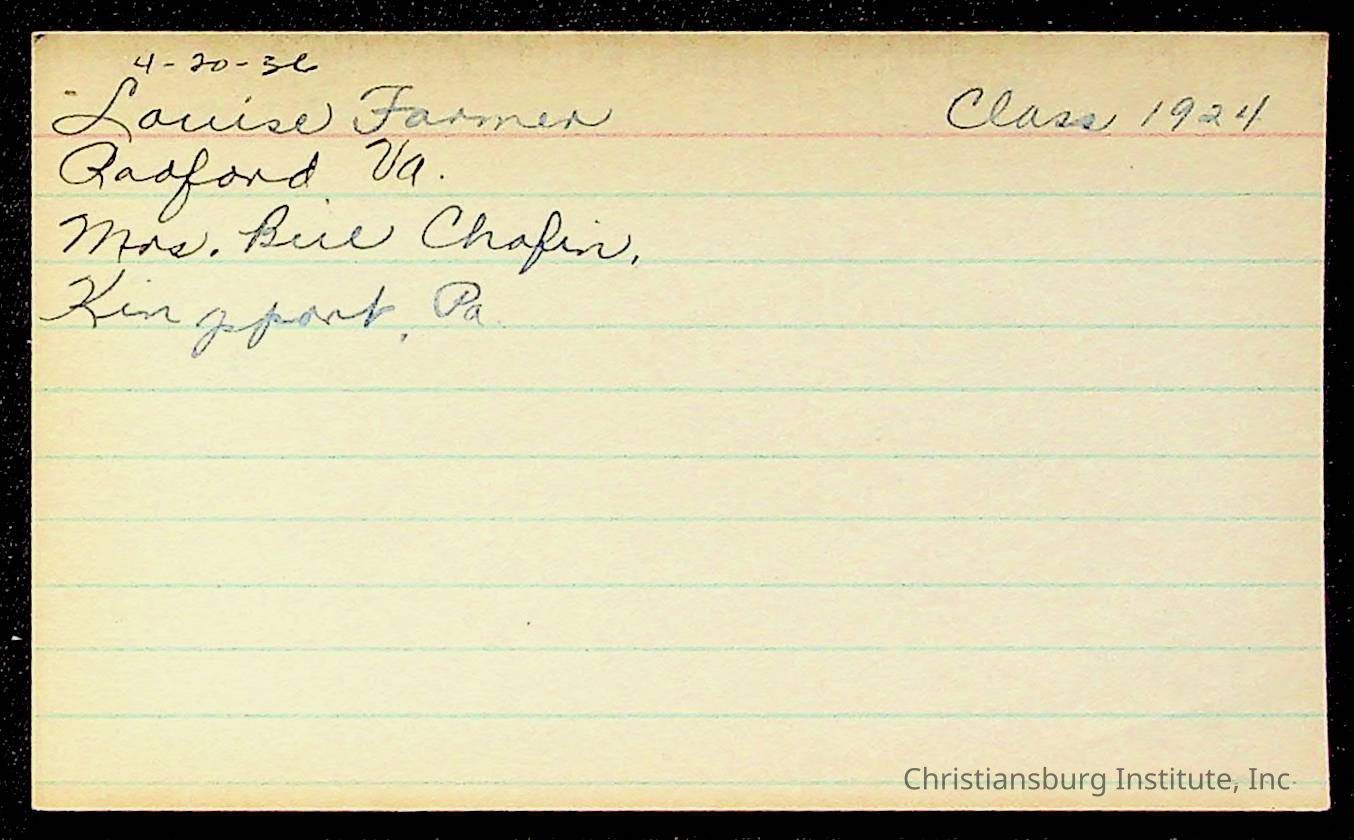 4-20-36
Louise Farmer Class 1924
Radford Va.
Mrs. Bill Chafin,
Kingport, Pa.
Christiansburg Institute, Inc